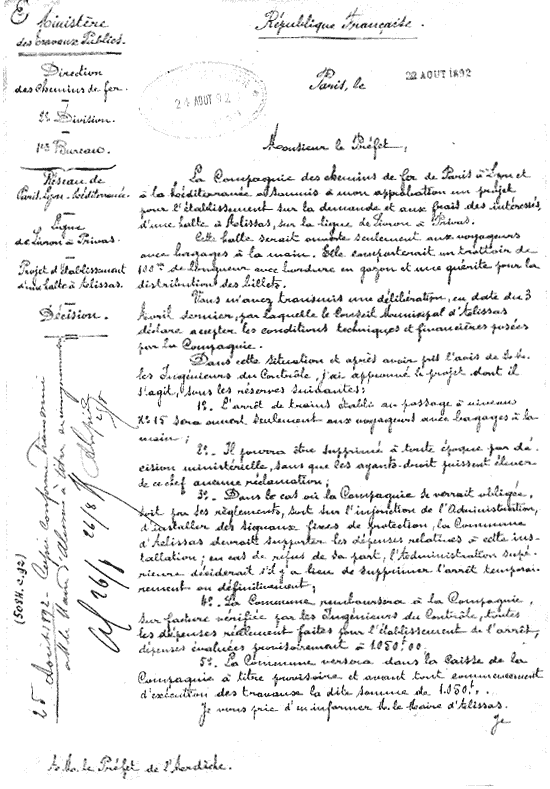 Ministère
des Travaux Publics.
République Française.
Direction
des Chemins de fer.
2e Division.
1er Bureau.
Réseau de
Paris-Lyon-Méditerranée.
Ligne
de Livron à Privas.
Projet d'Etablissement
d'une halte à Alissas.
Décision.
24 AOUT 92
Paris, le 22 AOUT 1892
Monsieur le Préfet,
La Compagnie des chemins de fer de Paris à Lyon et
à la Méditerranée a soumis à mon approbation un projet
pour l'établissement sur la demande et aux frais des intéressés,
d'une halte à Alissas, sur la ligne de Livron à Privas.
Cette halte serait ouverte seulement aux voyageurs
avec bagages à la main. Elle comporterait un trottoir de
100m de longueur avec bordure en gazon et une guérite pour la
distribution des billets.
Vous m'avez transmis une délibération, en date du 3
Avril dernier, par laquelle le Conseil Municipal d'Alissas
déclare accepter les conditions techniques et financières posées
par la Compagnie.
Dans cette situation et après avoir pris l'avis de M.M.
les Ingénieurs du Contrôle, j'ai approuvé le projet dont il
s'agit, sous les réserves suivantes:
1o. L'arrêt de trains établi au passage à niveau
No 15 sera ouvert seulement aux voyageurs avec bagages à la
main;
2o. Il pourra être supprimé à toute époque par dé-
cision ministérielle, sans que les ayants-droit puissent élever
de ce chef aucune réclamation;
3o. Dans le cas où la Compagnie se verrait obligée,
soit par ses règlements, soit sur l'injonction de l'Administration,
d'installer des signaux fixes de protection, la Commune
d'Alissas devrait supporter les dépenses relatives à cette ins-
tallation; en cas de refus de sa part, l'Administration supé-
rieure déciderait s'il y a lieu de supprimer l'arrêt temporai-
rement ou définitivement;
4o. La Commune remboursera à la Compagnie,
sur facture vérifiée par les Ingénieurs du Contrôle, toutes
les dépenses réellement faites pour l'établissement de l'arrêt,
dépenses évaluées provisoirement à 1050f.00
5o. La Commune versera dans la Caisse de la
Compagnie à titre provisoire et avant tout commencement
d'exécution des travaux la dite somme de 1.050f..
Je vous prie d'en informer M. le Maire d'Alissas.
Je
A M. le Préfet de l'Ardèche.
25 Août 1892 - Copie conforme
M. le Maire d'Alissas à titre
26/8
(5081. - 2. 92)